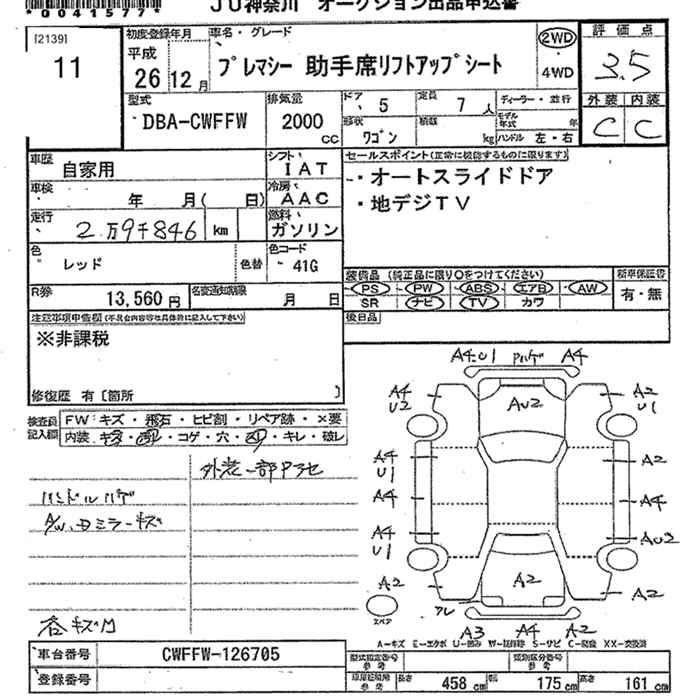 *0041577*
JU神奈川 オークション出品申込書
[2139]
11
初度登録年月
平成
26年12月
車名・グレード
プレマシー 助手席リフトアップシート
2WD
・
4WD
評価点
3.5
外装 内装
C C
型式
DBA-CWFFW
排気量
2000
CC
ドア
5
定員
7人
形状
ワゴン
積載
kg
ディーラー・並行
モデル年式 年
ハンドル 左・右
車歴
自家用
シフト
IAT
車検
年 月( 日)
冷房
AAC
走行
2万9千846 km
燃料
ガソリン
色
レッド
色替
色コード
41G
セールスポイント(正常に機能するものに限ります)
・オートスライドドア
・地デジTV
装備品 (純正品に限り○をつけてください)
PS・PW・ABS・エアB・AW
SR ナビ TV カワ
新車保証書
有・無
R券
13,560円
名変通知期限
月 日
後日品
注意事項申告欄(不具合内容等は具体的に記入して下さい)
※非課税
修復歴 有〔箇所 〕
検査員記入欄
FW:キズ・飛石・ヒビ割・リペア跡・×要
内装・キズ・汚れ・コゲ・穴・凹・キレ・破レ
外装一部Pアセ
ハンドルハゲ
AW、ドミラーキズ
各キズ凹
A4・U1 Pハゲ A4
A4
U2
AU2
A2
U1
A4
U1
A2
A4
A4
A4
U1
AU2
A2
A2
A2
スペア
A3 A4 A2
A-キズ E-エクボ U-凹み W-補修跡 S-サビ C-腐食 XX-交換済
車台番号
CWFFW-126705
登録番号
型式指定番号
参考
類別区分番号
参考
車庫証明用
参考
長さ
458cm
巾
175cm
高さ
161cm